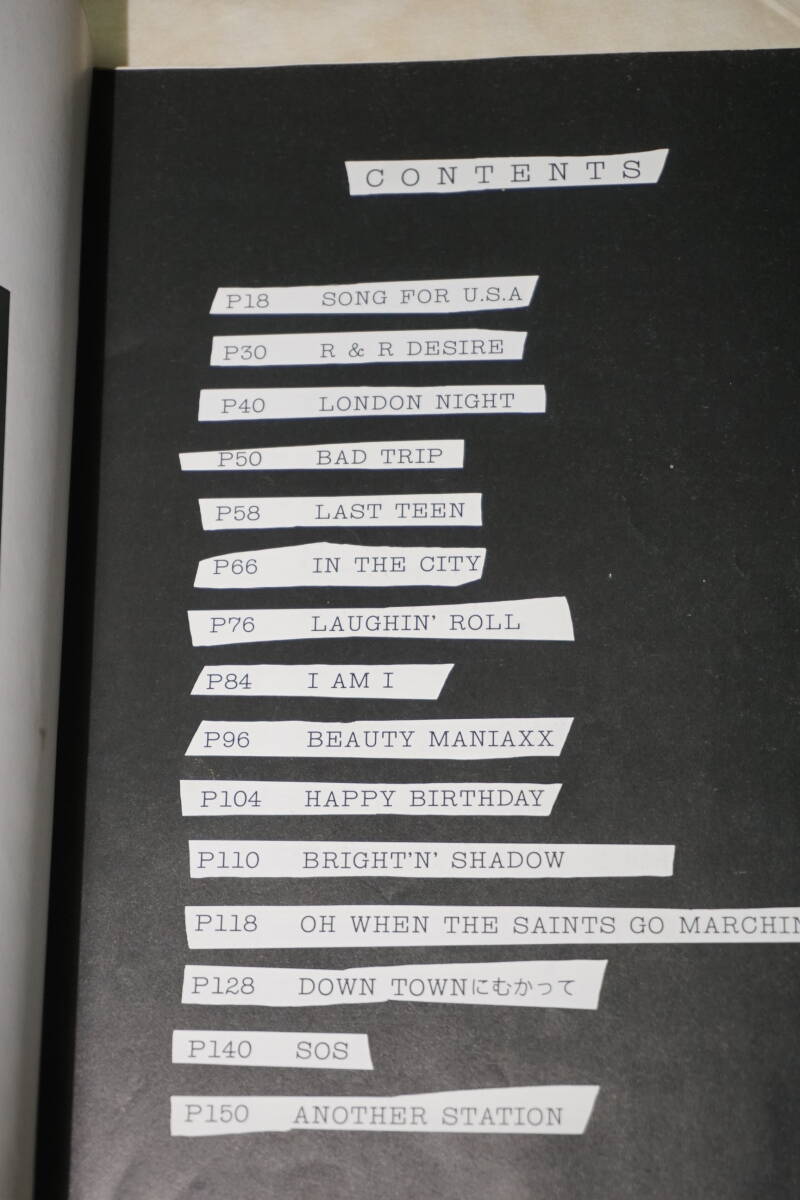 CONTENTS
P18 SONG FOR U.S.A
P30 R & R DESIRE
P40 LONDON NIGHT
P50 BAD TRIP
P58 LAST TEEN
P66 IN THE CITY
P76 LAUGHIN' ROLL
P84 I AM I
P96 BEAUTY MANIAXX
P104 HAPPY BIRTHDAY
P110 BRIGHT'N' SHADOW
P118 OH WHEN THE SAINTS GO MARCHIN
P128 DOWN TOWNにむかって
P140 SOS
P150 ANOTHER STATION